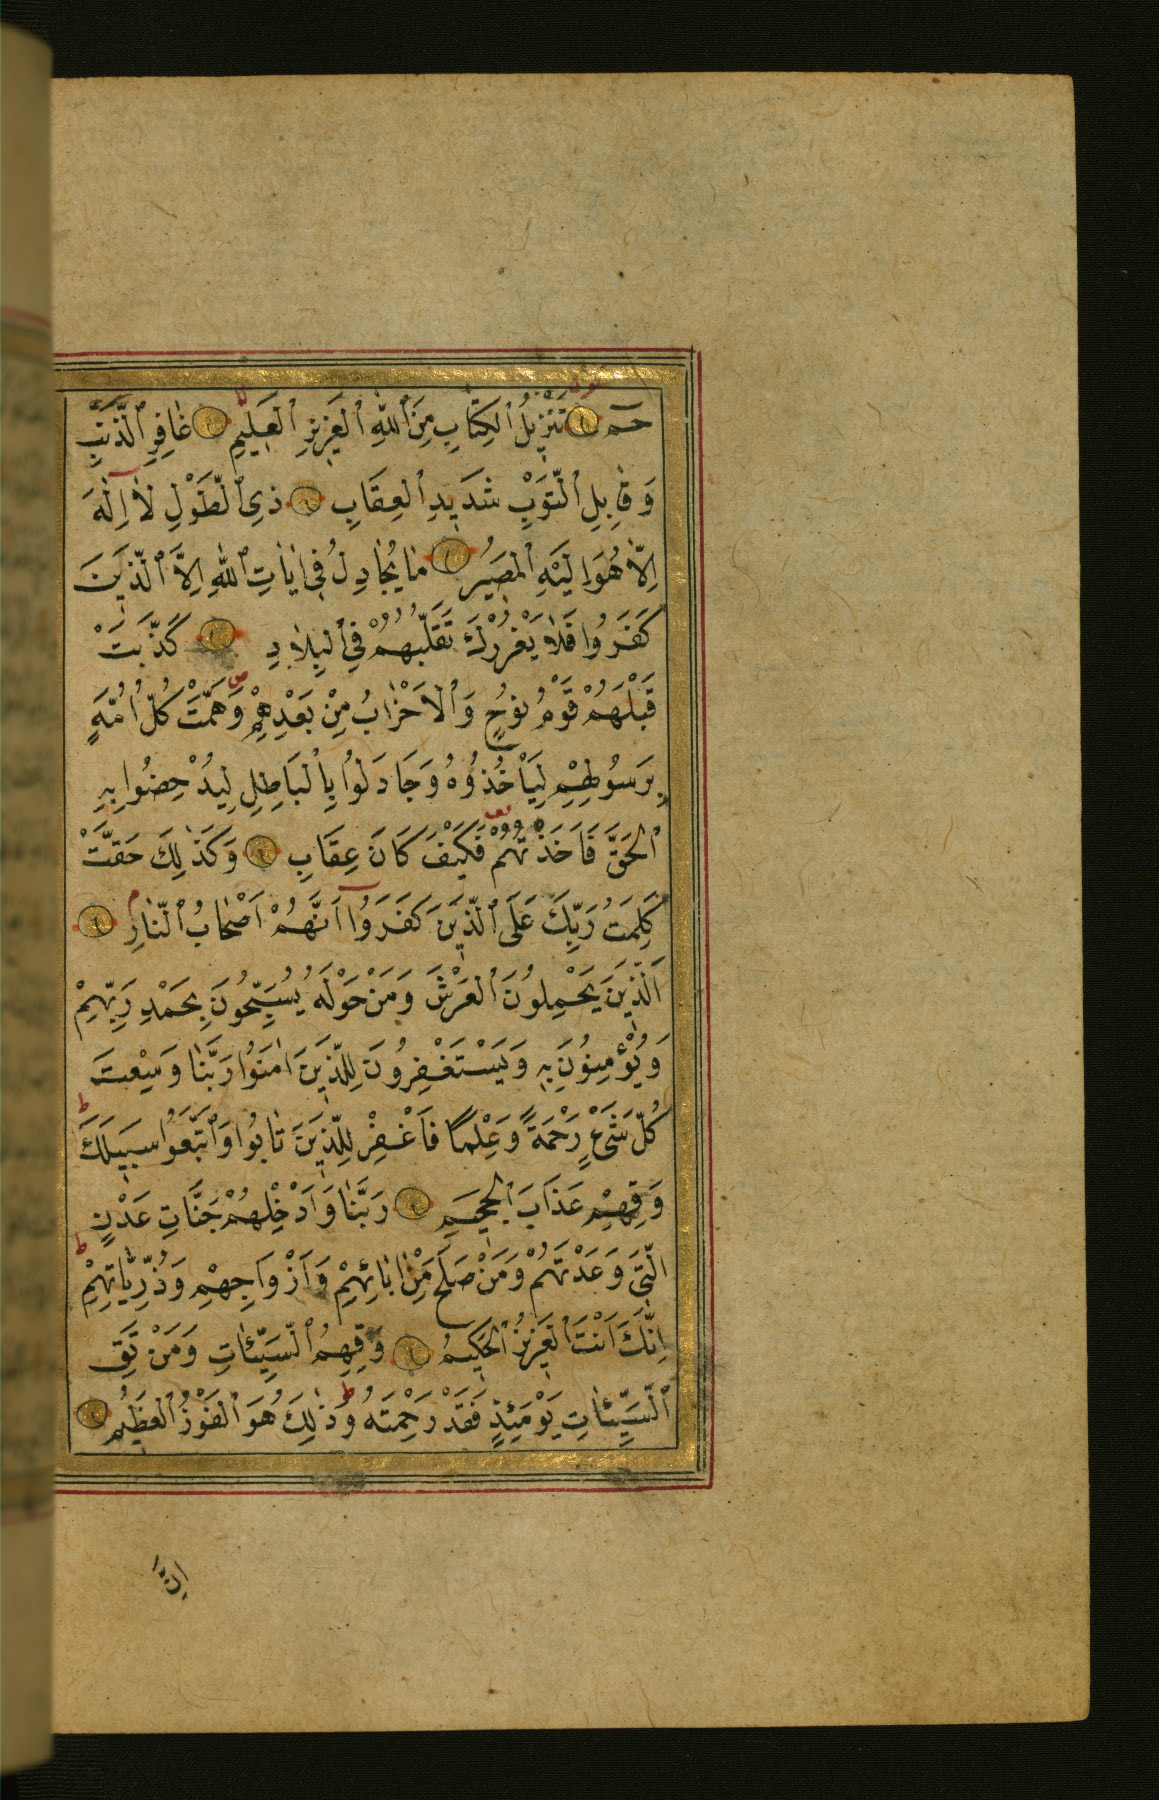 حٰمٓ تَنْزٖيلُ ٱلْكِتَابِ مِنَ ٱللّٰهِ ٱلْعَزٖيزِ ٱلْعَلٖيمِ غَافِرِ ٱلذَّنْبِ
وَقَابِلِ ٱلتَّوْبِ شَدٖيدِ ٱلْعِقَابِ ذِى ٱلطَّوْلِ لَٓا اِلٰهَ
اِلَّا هُوَ اِلَيْهِ ٱلْمَصٖيرُ مَا يُجَادِلُ فٖى اٰيَاتِ ٱللّٰهِ اِلَّا ٱلَّذٖينَ
كَفَرُوا فَلَا يَغْرُرْكَ تَقَلُّبُهُمْ فِى ٱلْبِلَادِ كَذَّبَتْ
قَبْلَهُمْ قَوْمُ نُوحٍ وَٱلْاَحْزَابُ مِنْ بَعْدِهِمْ وَهَمَّتْ كُلُّ اُمَّةٍ
بِرَسُولِهِمْ لِيَأْخُذُوهُ وَجَادَلُوا بِٱلْبَاطِلِ لِيُدْحِضُوا بِهِ
ٱلْحَقَّ فَاَخَذْتُهُمْ فَكَيْفَ كَانَ عِقَابِ وَكَذٰلِكَ حَقَّتْ
كَلِمَتُ رَبِّكَ عَلَى ٱلَّذٖينَ كَفَرُٓوا اَنَّهُمْ اَصْحَابُ ٱلنَّارِ
اَلَّذٖينَ يَحْمِلُونَ ٱلْعَرْشَ وَمَنْ حَوْلَهُ يُسَبِّحُونَ بِحَمْدِ رَبِّهِمْ
وَيُؤْمِنُونَ بِهٖ وَيَسْتَغْفِرُونَ لِلَّذٖينَ اٰمَنُوا رَبَّنَا وَسِعْتَ
كُلَّ شَىْءٍ رَحْمَةً وَعِلْمًا فَاغْفِرْ لِلَّذٖينَ تَابُوا وَٱتَّبَعُوا سَبٖيلَكَ
وَقِهِمْ عَذَابَ ٱلْجَحٖيمِ رَبَّنَا وَاَدْخِلْهُمْ جَنَّاتِ عَدْنٍ
الَّتٖى وَعَدْتَهُمْ وَمَنْ صَلَحَ مِنْ اٰبَائِهِمْ وَاَزْوَاجِهِمْ وَذُرِّيَّاتِهِمْ
اِنَّكَ اَنْتَ ٱلْعَزٖيزُ ٱلْحَكٖيمُ وَقِهِمُ ٱلسَّيِّئَاتِ وَمَنْ تَقِ
ٱلسَّيِّئَاتِ يَوْمَئِذٍ فَقَدْ رَحِمْتَهُ وَذٰلِكَ هُوَ ٱلْفَوْزُ ٱلْعَظٖيمُ
اِنَّ